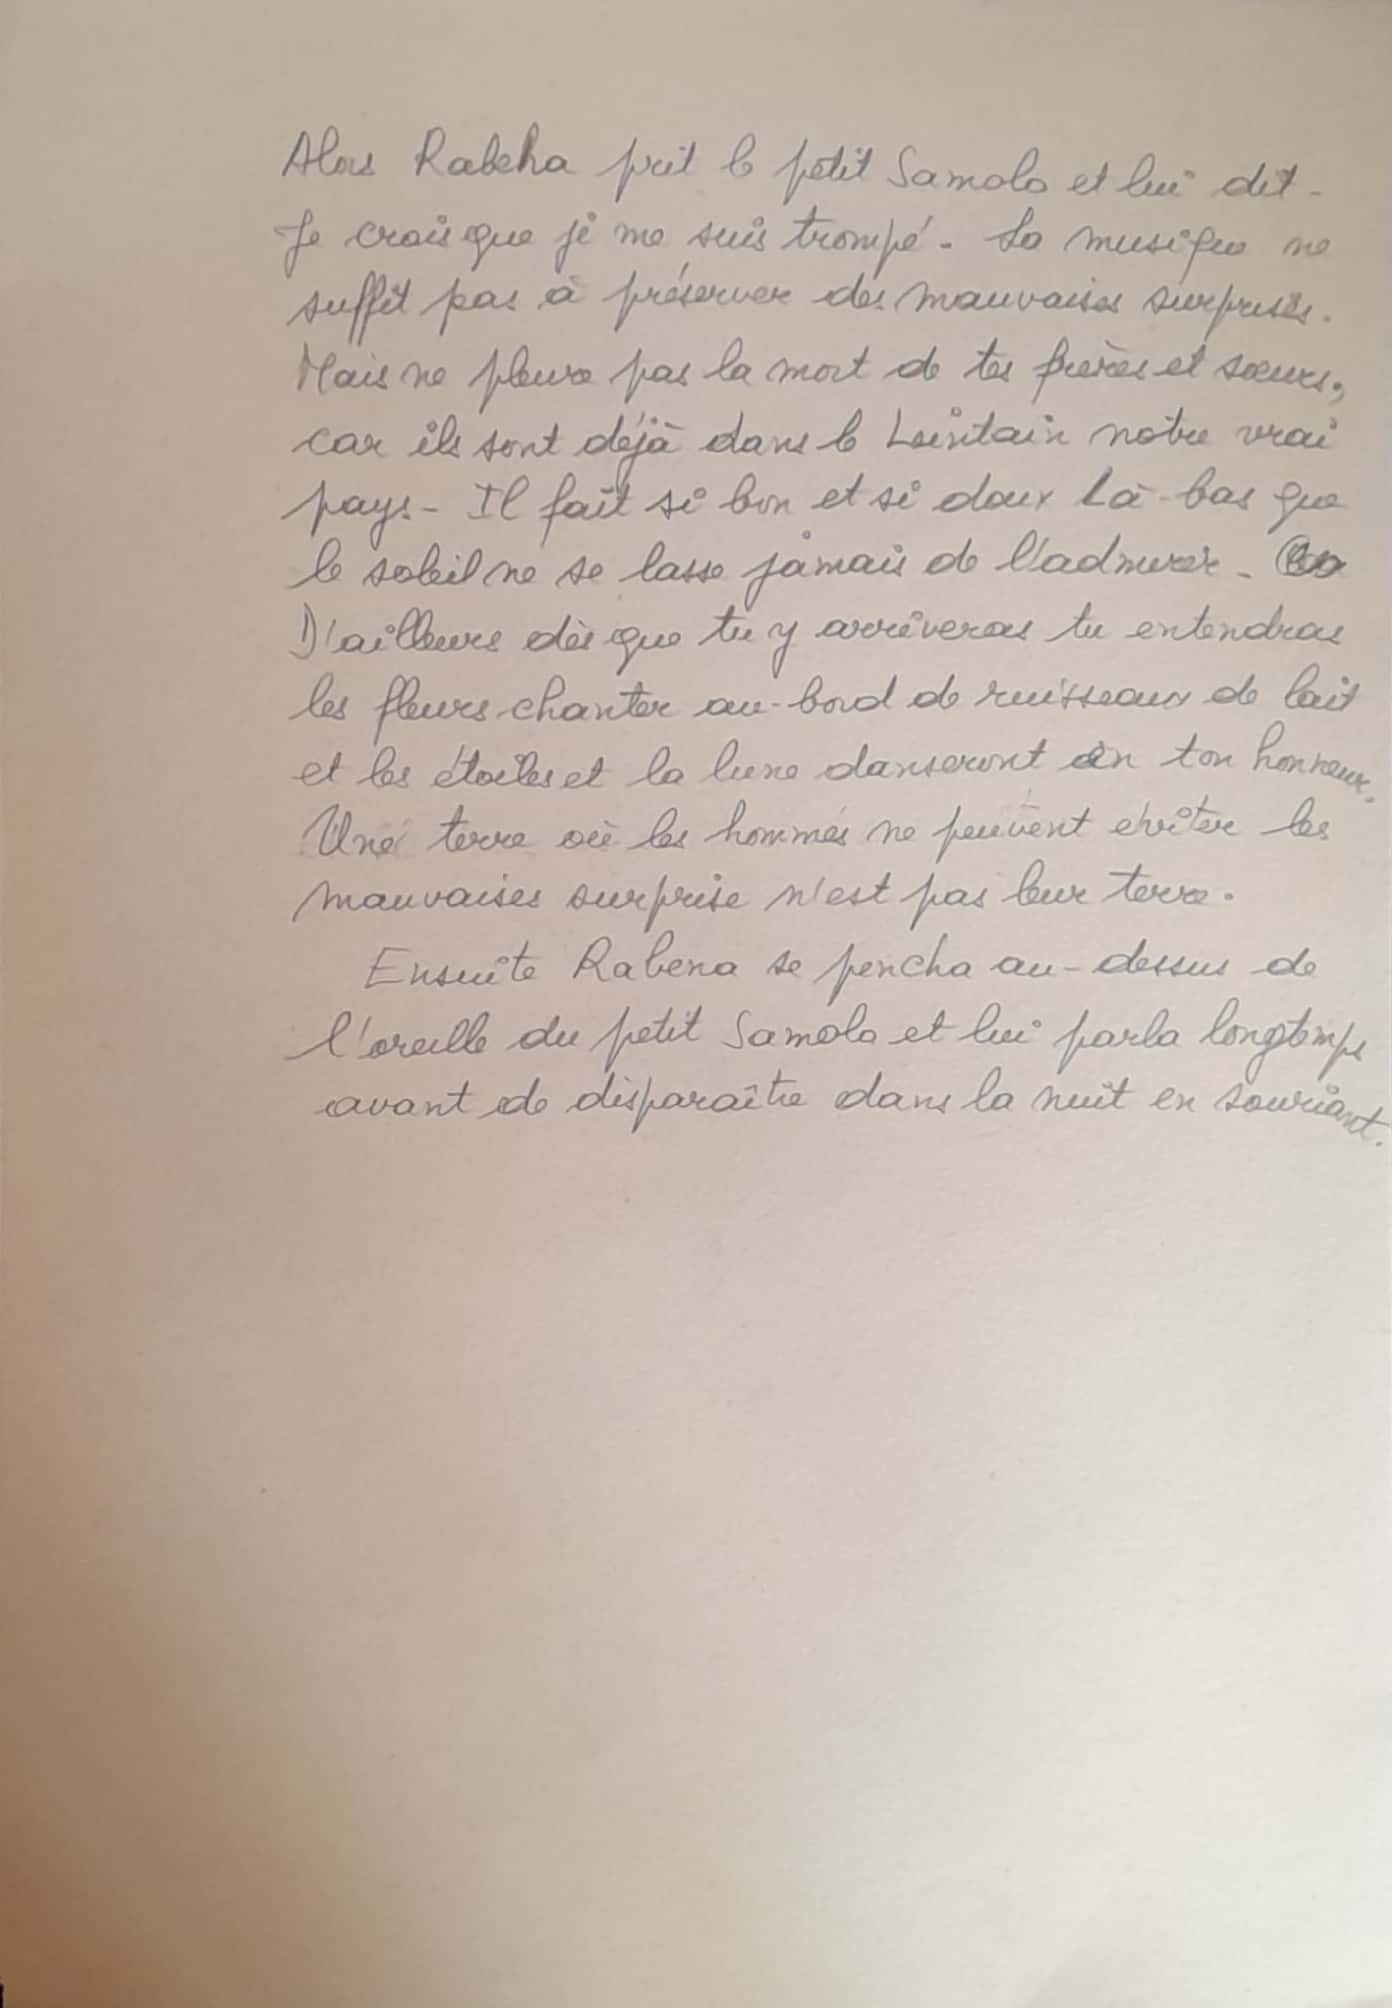 Alors Rabeha prit le petit Samolo et lui dit -
Je crois que je me suis trompé - La musique ne
suffit pas à préserver des mauvaises surprises.
Mais ne pleure pas la mort de tes frères et sœurs,
car ils sont déjà dans le Lointain notre vrai
pays - Il fait si bon et si doux Là-bas que
le soleil ne se lasse jamais de l'admirer -
D'ailleurs dès que tu y arriveras tu entendras
les fleurs chanter au-bord de ruisseaux de lait
et les étoiles et la lune danseront en ton honneur.
Une terre où les hommes ne peuvent éviter les
mauvaises surprise n'est pas leur terre.
Ensuite Rabena se pencha au-dessus de
l'oreille du petit Samolo et lui parla longtemps
avant de disparaître dans la nuit en souriant.